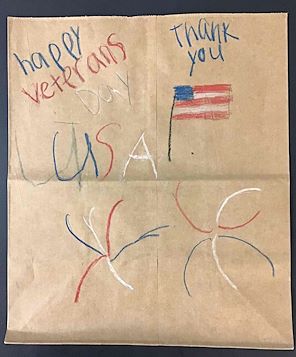 happy
veterans
Day
Thank
you
USA